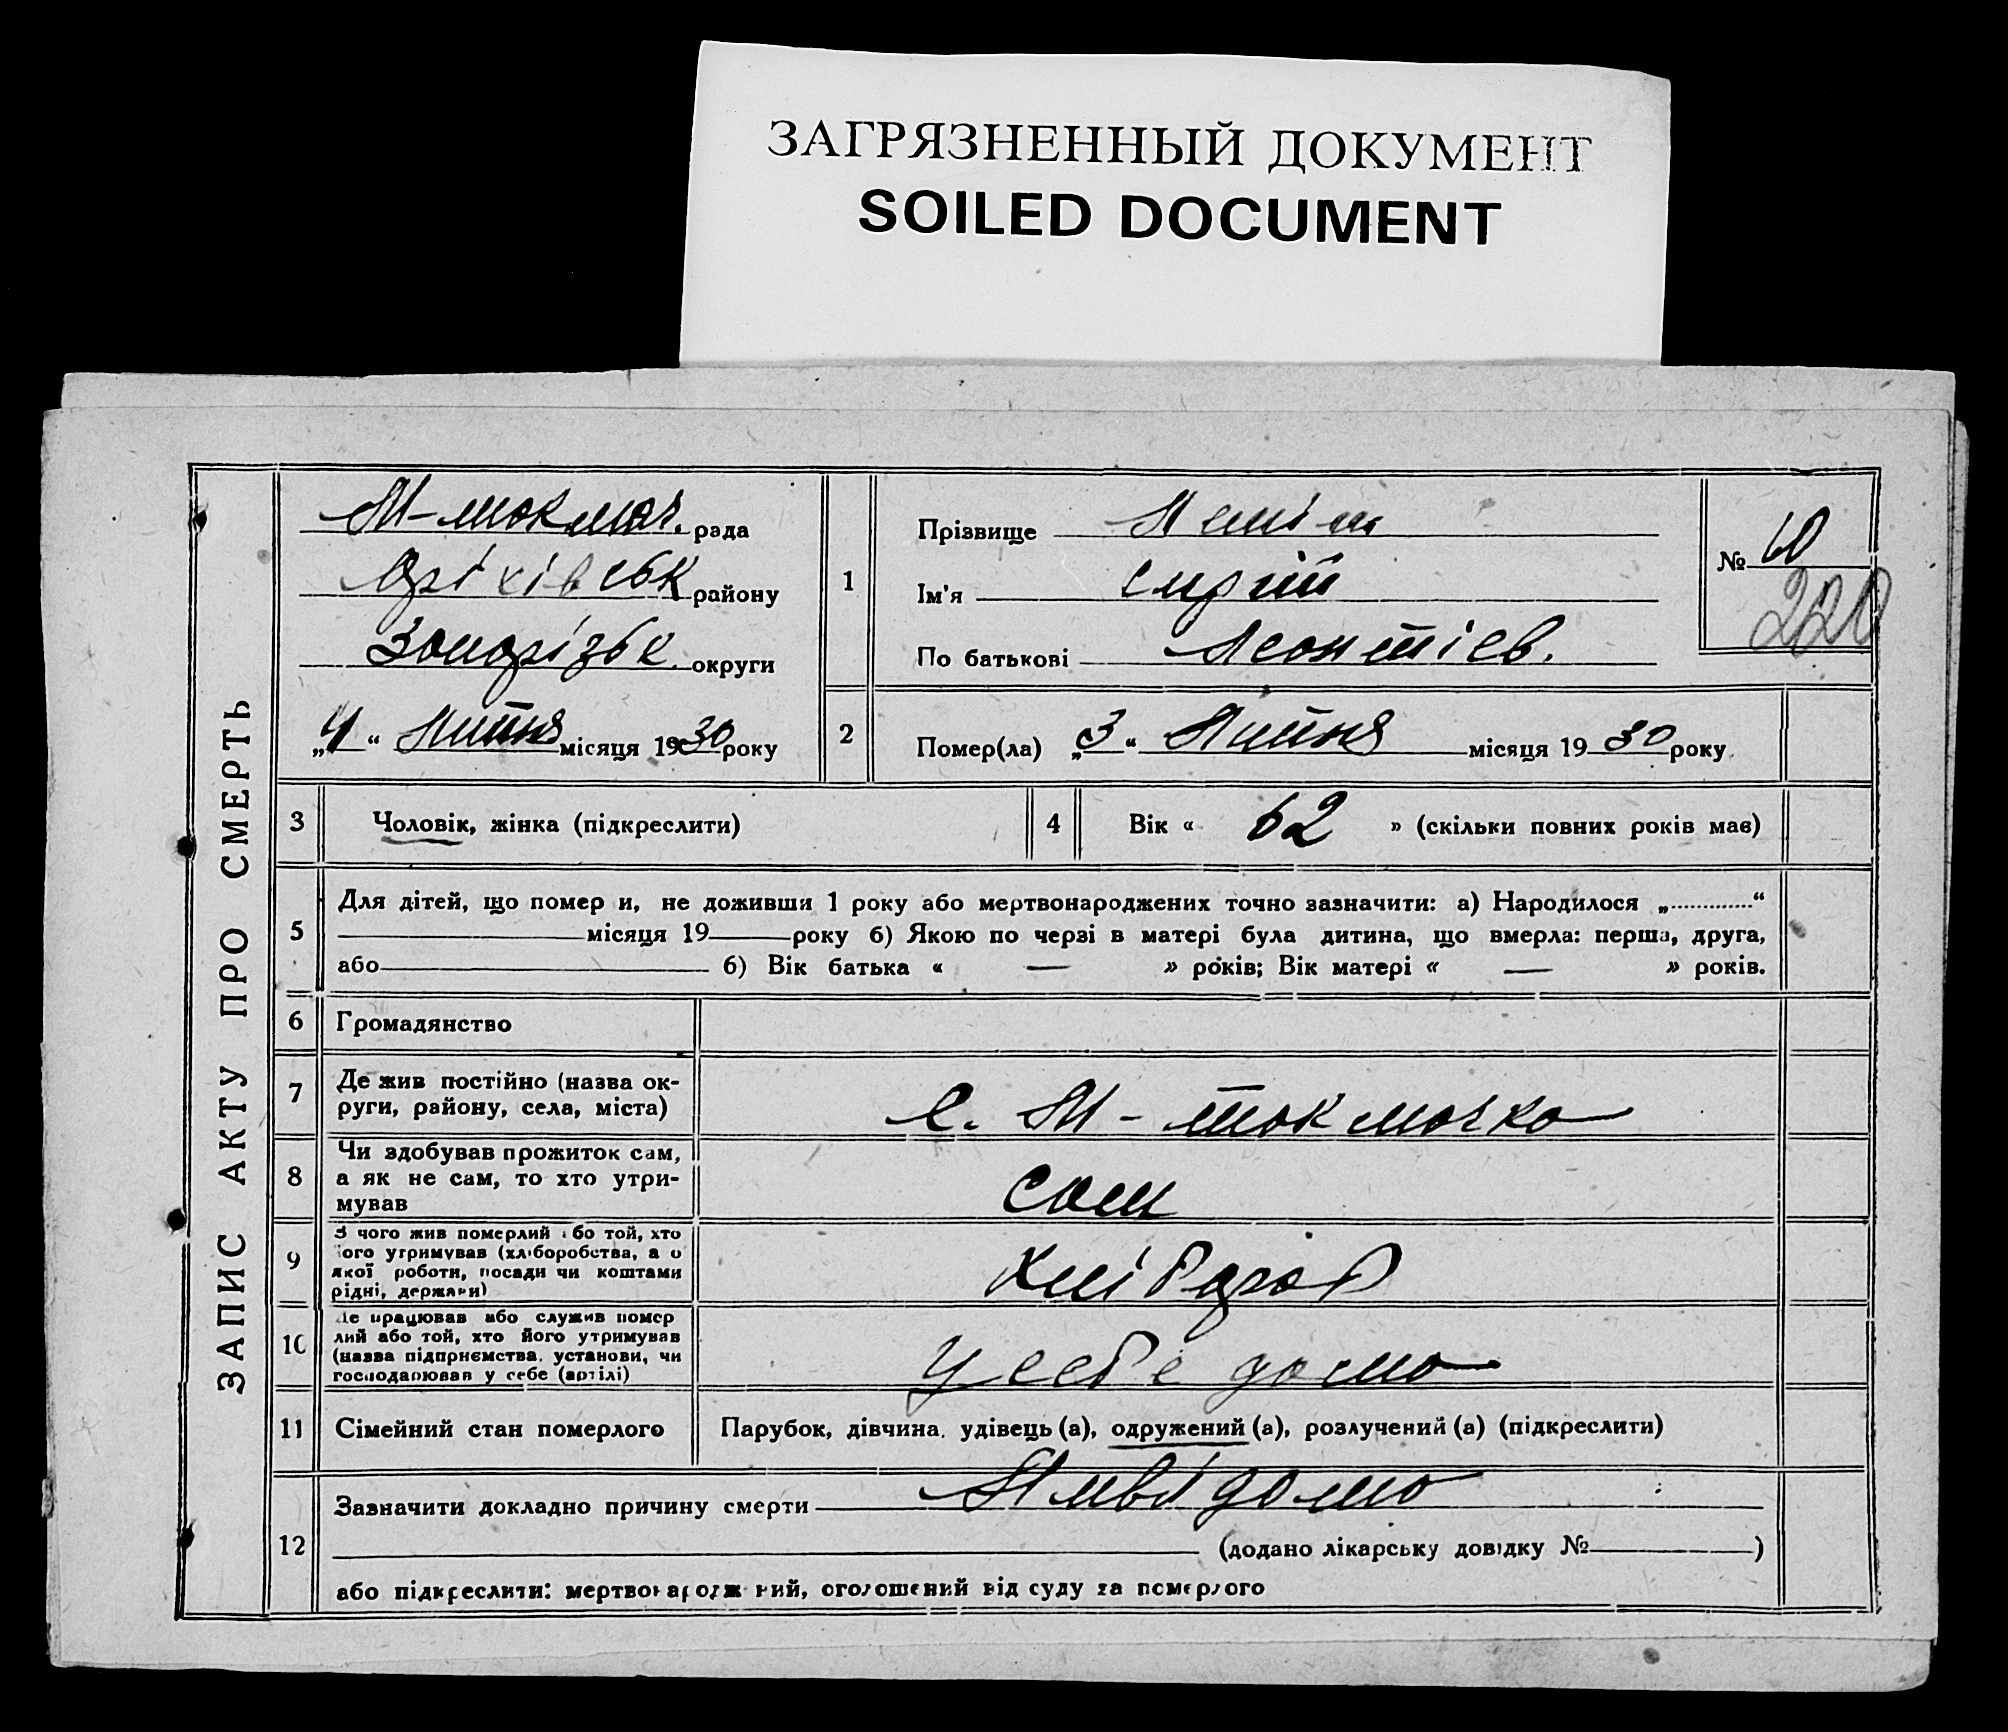 ЗАГРЯЗНЕННЫЙ ДОКУМЕНТ
SOILED DOCUMENT
ЗАПИС АКТУ ПРО СМЕРТЬ
М-Токмач. рада
Оріхівськ району
Запорізьк. округи
„4“ Липня місяця 1930 року
1
Прізвище
Ім'я Сиргій
По батькові Леонтієв.
№ 10
220
2 Помер(ла) „3“ Липня місяця 19 30 року
3 Чоловік, жінка (підкреслити)
4 Вік « 62 » (скільки повних років має)
5 Для дітей, що помер и, не доживши 1 року або мертвонароджених точно зазначити: а) Народилося „ “
місяця 19 року б) Якою по черзі в матері була дитина, що вмерла: перша, друга,
або б) Вік батька « — » років; Вік матері « — » років.
6 Громадянство
7 Де жив постійно (назва ок-
руги, району, села, міста)
с. М-Токмачка
8 Чи здобував прожиток сам,
а як не сам, то хто утри-
мував
сам
9 З чого жив померлий або той, хто
його утримував (хліборобства, а о
якої роботи, посади чи коштами
рідні, держави)
Хлібороб
10 Де працював або служив помер
лий або той, хто його утримував
(назва підприємства, установи, чи
господарював у себе (артілі)
у себе дома
11 Сімейний стан померлого Парубок, дівчина, удівець (а), одружений (а), розлучений (а) (підкреслити)
12 Зазначити докладно причину смерти Нивідомо
(додано лікарську довідку № )
або підкреслити: мертвонароджений, оголошений від суду за померлого